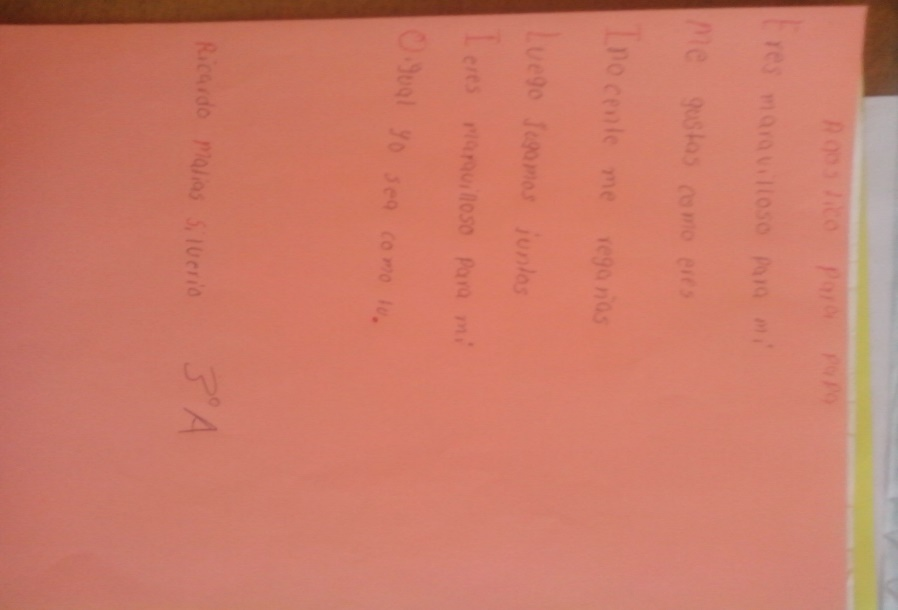 Agostico para papa
Eres maravilloso para mi
Me gustas como eres
Inocente me regañas
Luego jugamos juntos
I eres maravilloso para mi
Oigual yo sea como tu.
Ricardo Matias Silverio 3°A